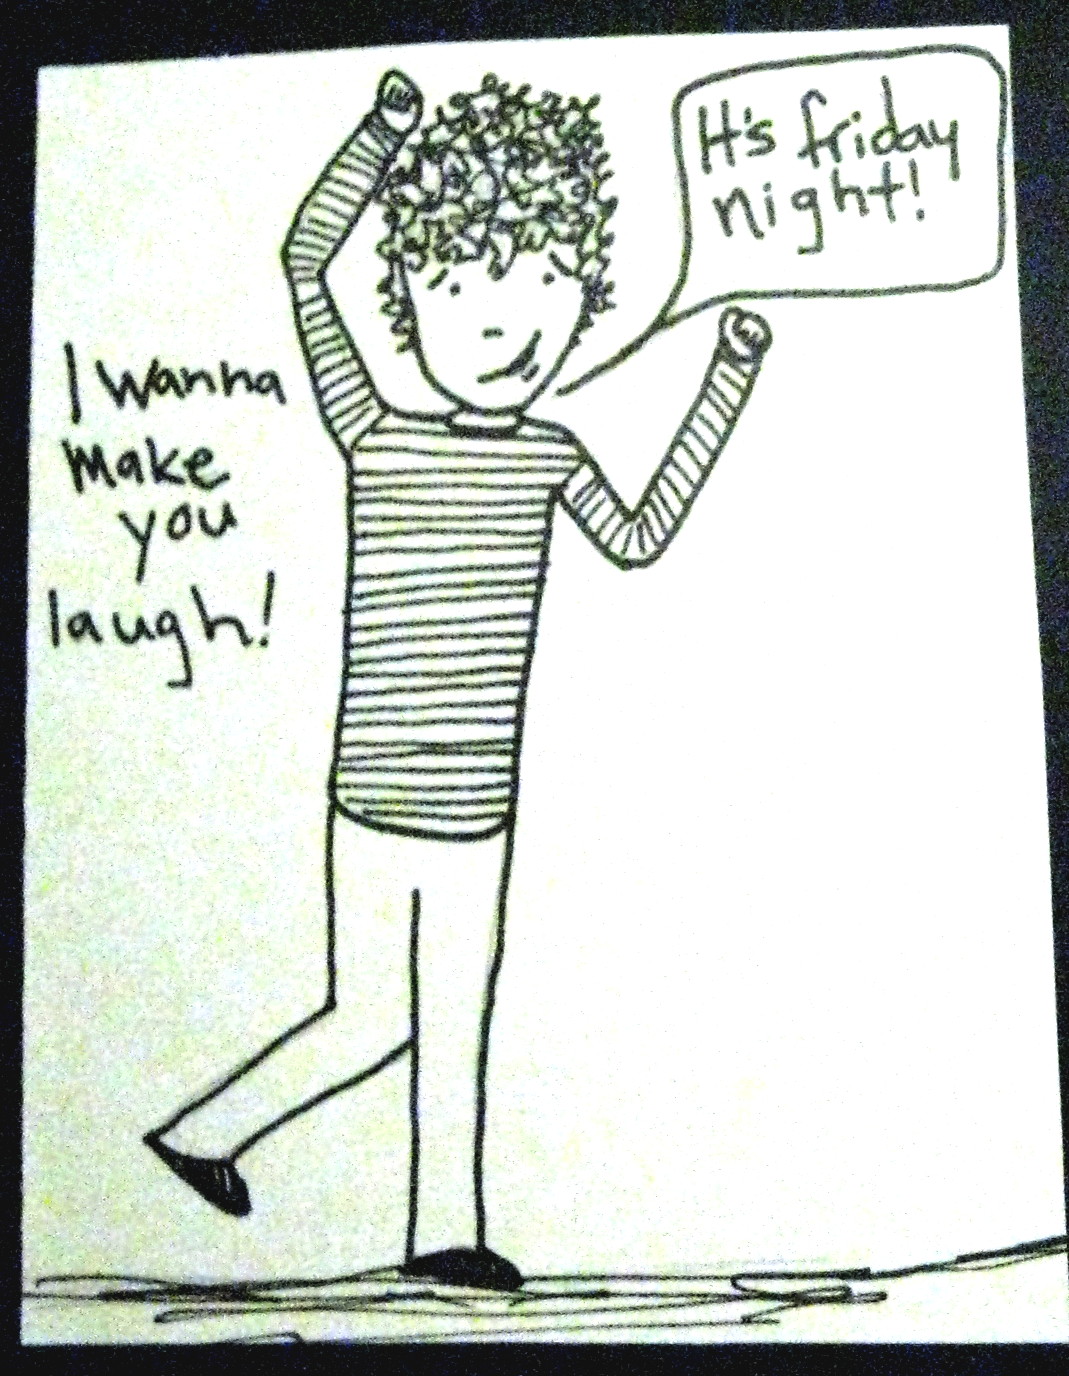 It's friday
night!
I wanna
make
you
laugh!